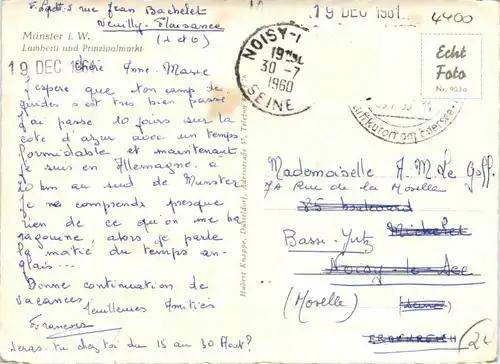 F. Lodt. 5 rue Jean Bachelet
Neuilly-Plaisance
(S et O)
Münster i. W.
Lamberti und Prinzipalmarkt
19 DEC 1961
19 DEC 1961
4400
Echt
Foto
Nr. 903a
NOISY-
19H
30-7
1960
SEINE
Luftkurort am Edersee
Chère Anne-Marie
J'espère que ton camp de
guides s'est très bien passé
J'ai passé 10 jours sur la
côte d'azur avec un temps
formidable et maintenant
je suis en Allemagne, à
20 km au sud de Munster
Je ne comprends presque
rien de ce qu'on me ba
ragouine, alors je parle
la moitié du temps an-
glais...
Bonne continuation de
vacances.
Meilleures Amitiés
Francoise
Seras-tu chez toi du 15 au 30 Août?
Hubert Knappe, Düsseldorf, Adersstraße 57, Telefon
Mademoiselle A. M. Le Goff
7A Rue de la Moselle
85 boulevard
Michelet
Basse-Yutz
Noisy-le-Sec
(Moselle)
(Seine)
FRANKREICH
2L